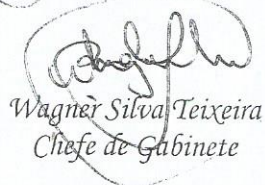 Wagner Silva Teixeira
Chefe de Gabinete